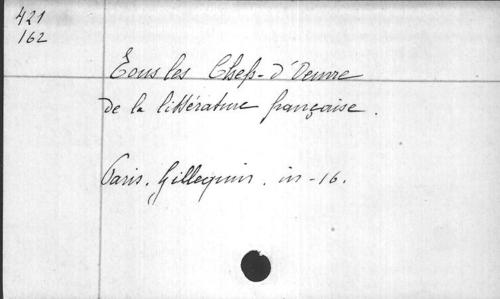 421
162
Tous les Chefs-d'Oeuvre
de la littérature française.
Paris. Gillequin. in-16.